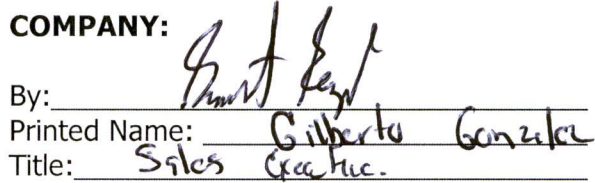 COMPANY:
By:
Printed Name: Gilberto Gonzalez
Title: Sales Executive.